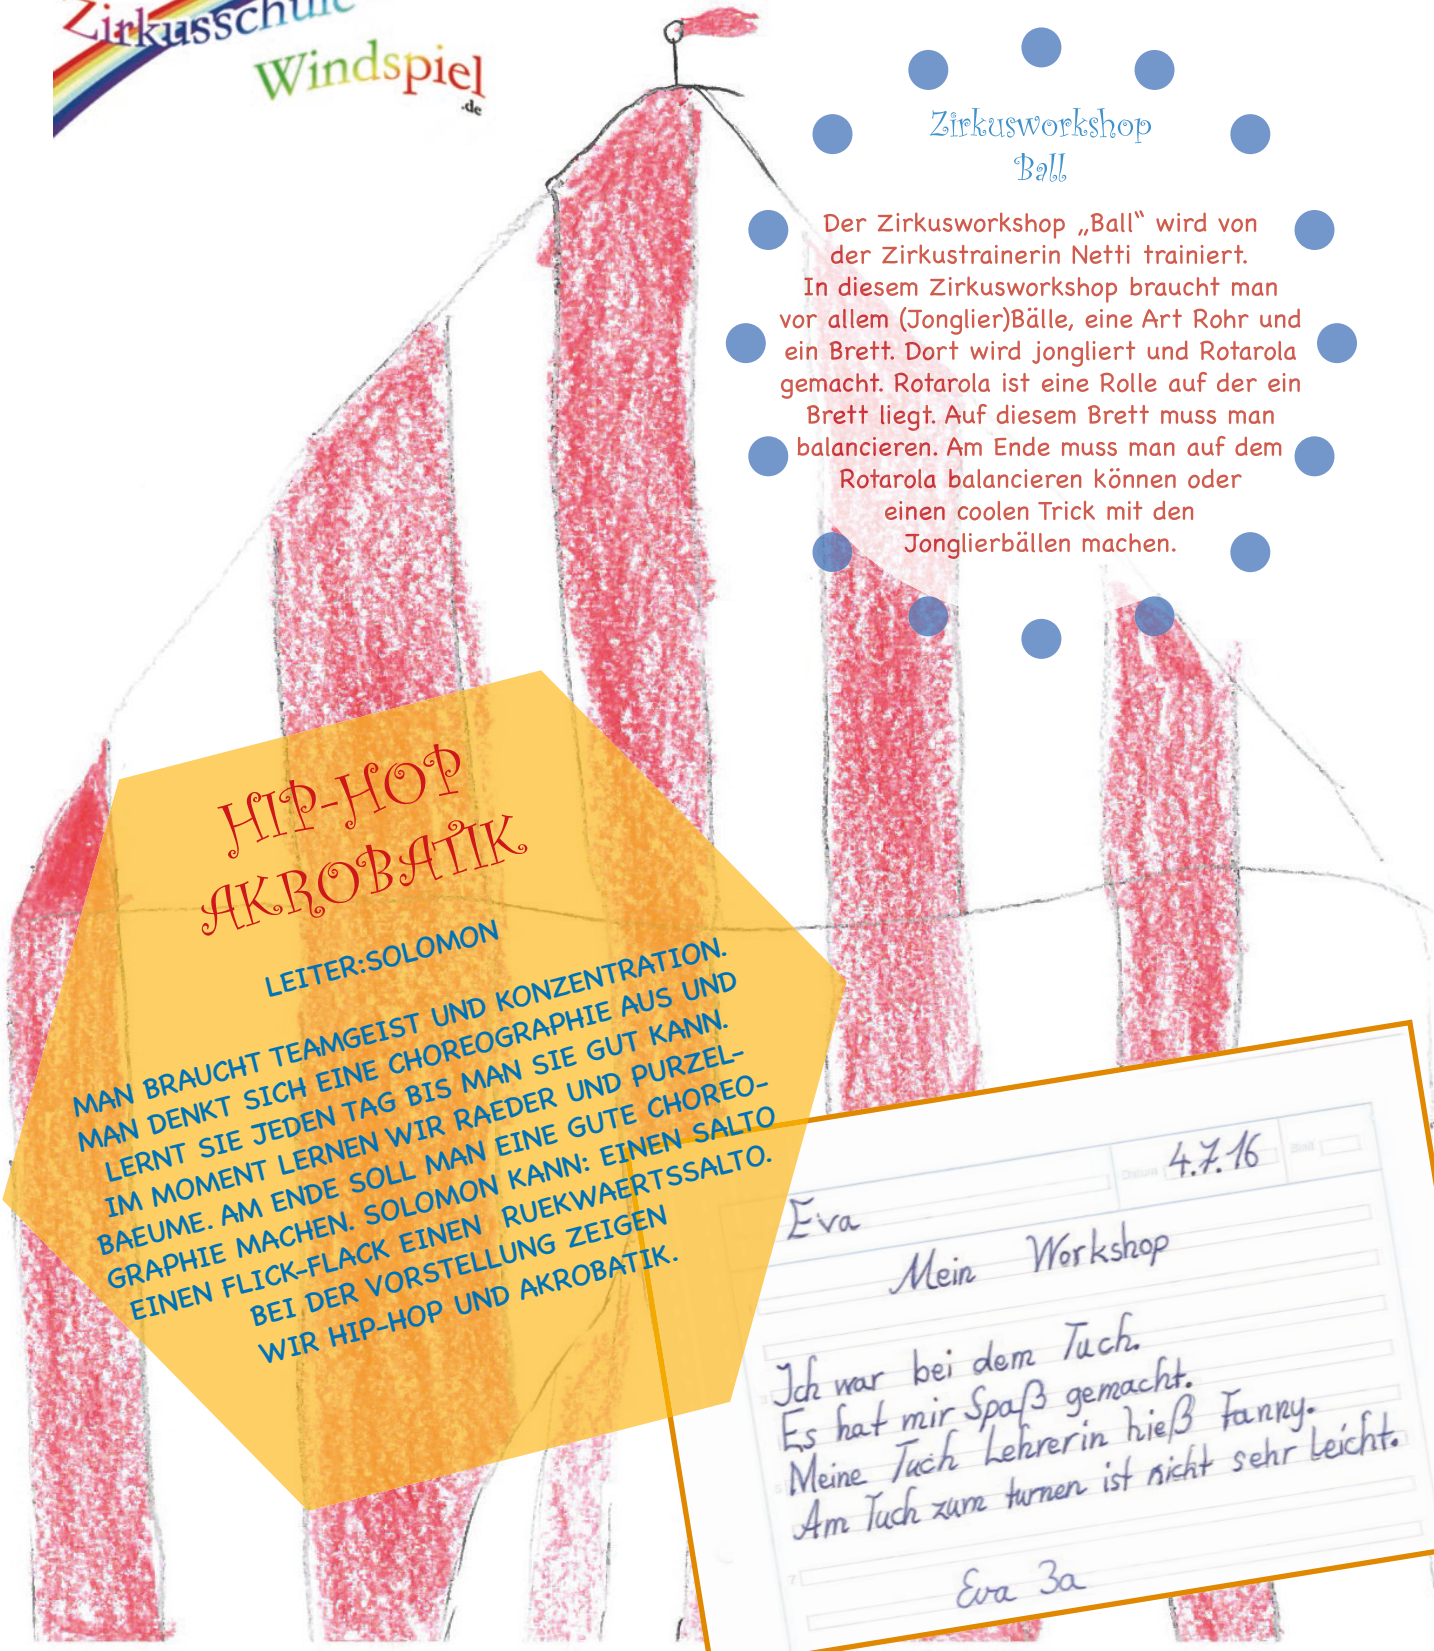 Zirkusschule
Windspiel
.de
Zirkusworkshop
Ball
Der Zirkusworkshop „Ball“ wird von
der Zirkustrainerin Netti trainiert.
In diesem Zirkusworkshop braucht man
vor allem (Jonglier)Bälle, eine Art Rohr und
ein Brett. Dort wird jongliert und Rotarola
gemacht. Rotarola ist eine Rolle auf der ein
Brett liegt. Auf diesem Brett muss man
balancieren. Am Ende muss man auf dem
Rotarola balancieren können oder
einen coolen Trick mit den
Jonglierbällen machen.
HIP-HOP
AKROBATIK
LEITER:SOLOMON
MAN BRAUCHT TEAMGEIST UND KONZENTRATION.
MAN DENKT SICH EINE CHOREOGRAPHIE AUS UND
LERNT SIE JEDEN TAG BIS MAN SIE GUT KANN.
IM MOMENT LERNEN WIR RAEDER UND PURZEL-
BAEUME. AM ENDE SOLL MAN EINE GUTE CHOREO-
GRAPHIE MACHEN. SOLOMON KANN: EINEN SALTO
EINEN FLICK-FLACK EINEN RUEKWAERTSSALTO.
BEI DER VORSTELLUNG ZEIGEN
WIR HIP-HOP UND AKROBATIK.
Datum 4.7.16 Blatt
Eva
Mein Workshop
Ich war bei dem Tuch.
Es hat mir Spaß gemacht.
Meine Tuch Lehrerin hieß Fanny.
Am Tuch zum turnen ist nicht sehr leicht.
Eva 3a